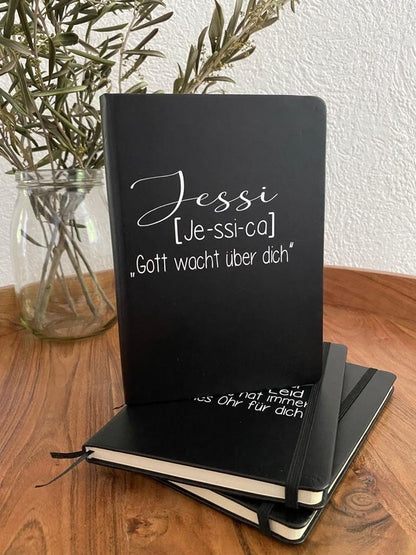 Jessi
[Je-ssi-ca]
„Gott wacht über dich“
Leid
hat immer
Ohr für dich